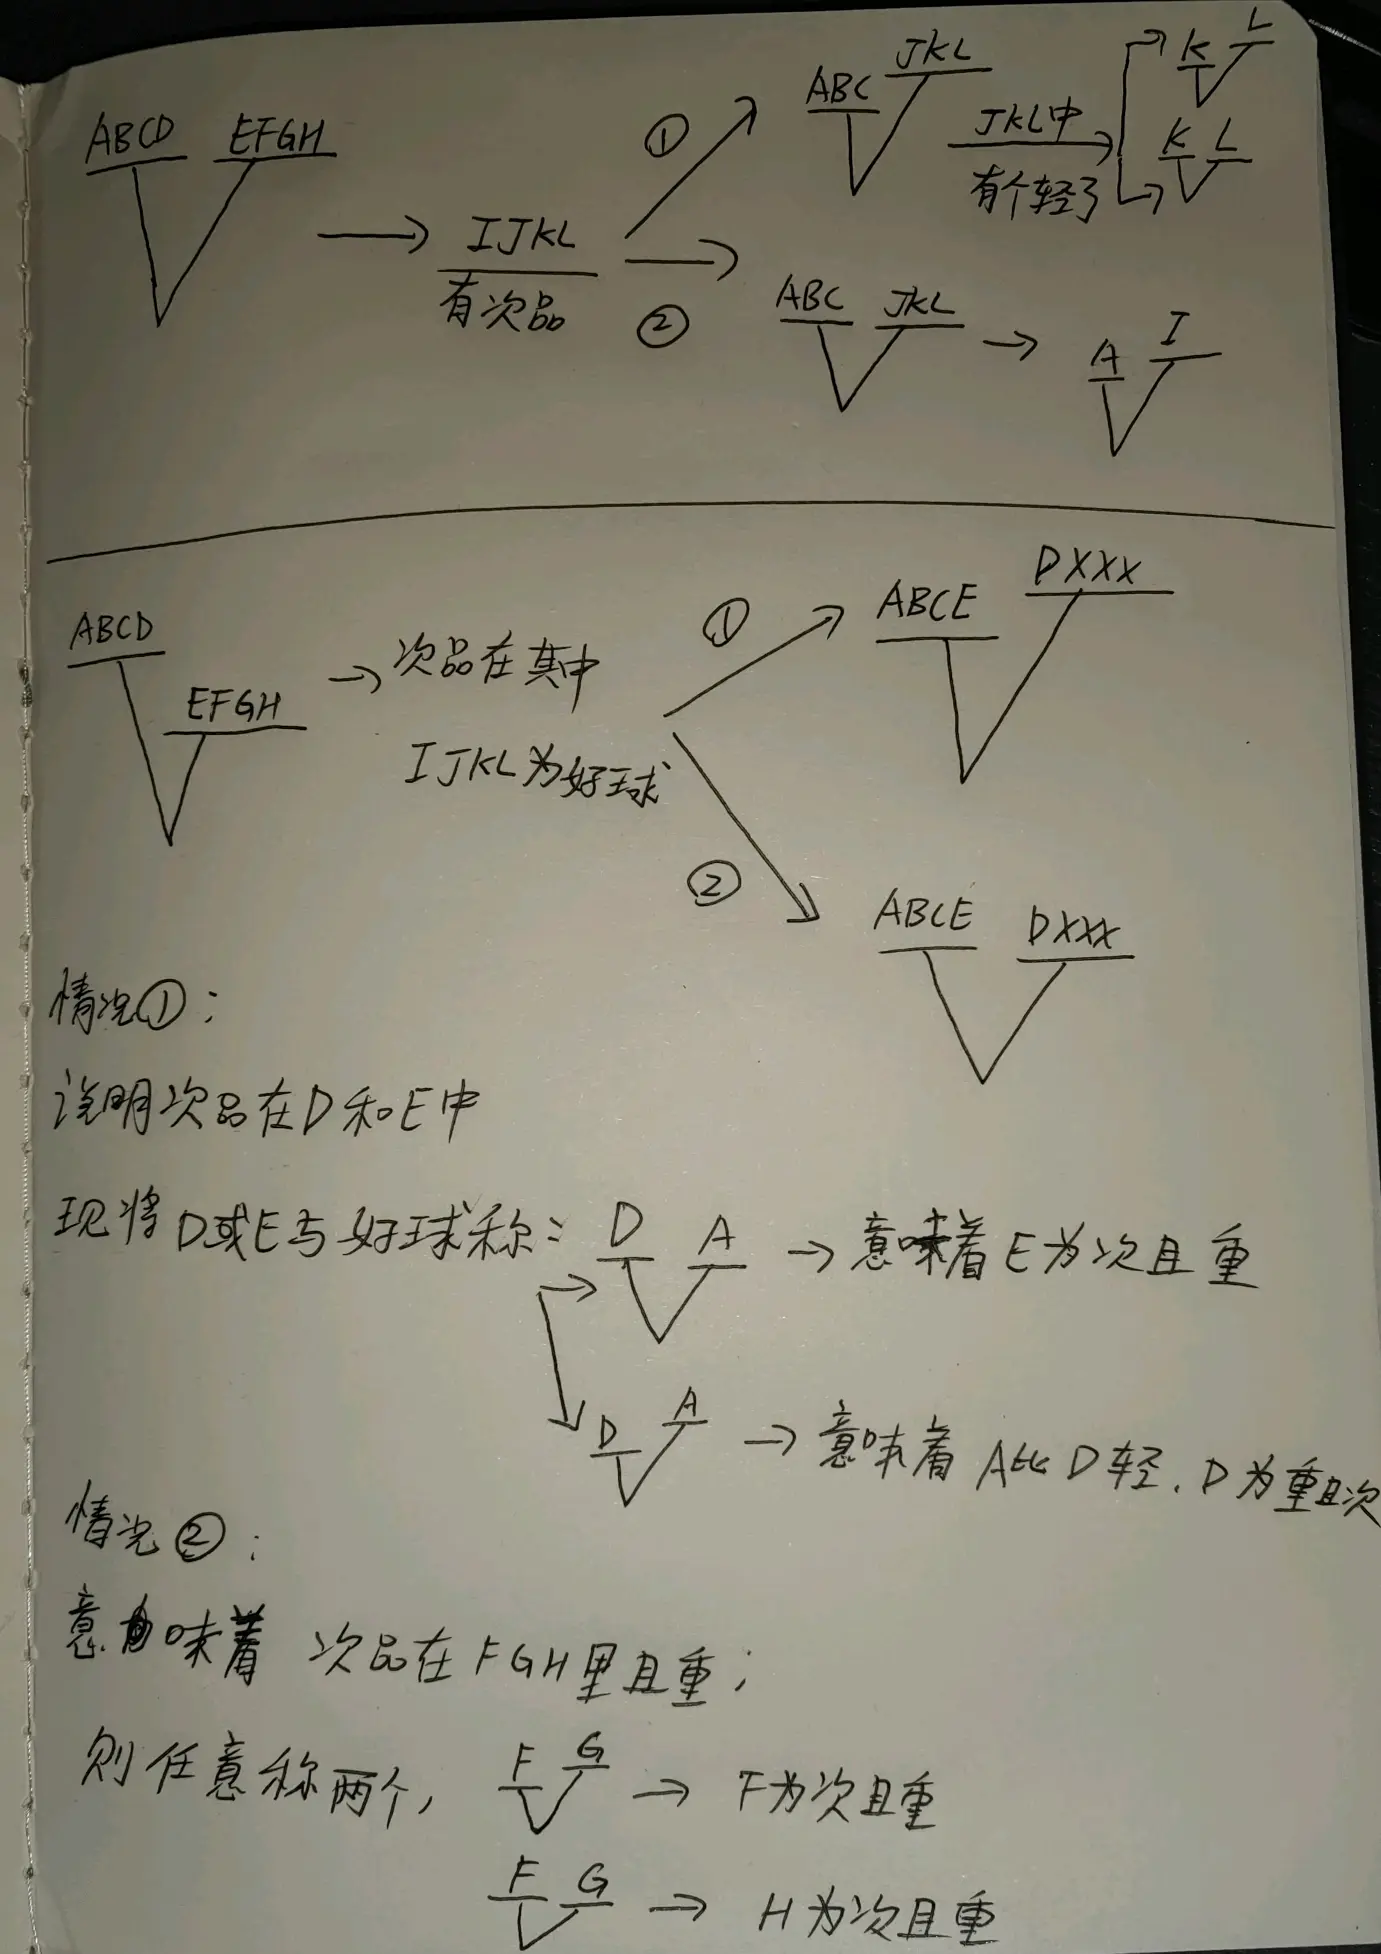 ABCD EFGH
IJKL
有次品
①
ABC JKL
JKL中
有个轻了
K L
K L
②
ABC JKL
A I
ABCD
EFGH
次品在其中
IJKL为好球
①
ABCE DXXX
②
ABCE DXXX
情况①:
说明次品在D和E中
现将D或E与好球称:
D A
意味着E为次且重
D A
意味着 A比D轻.D为重且次
情况②:
意味着 次品在FGH里且重;
则任意称两个,
F G
F为次且重
F G
H为次且重